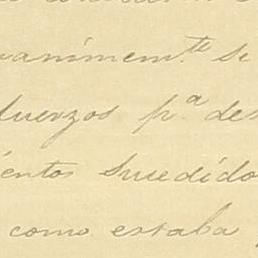 animem.te se
fuerzos p.a des
ientos sucedido
como estaba